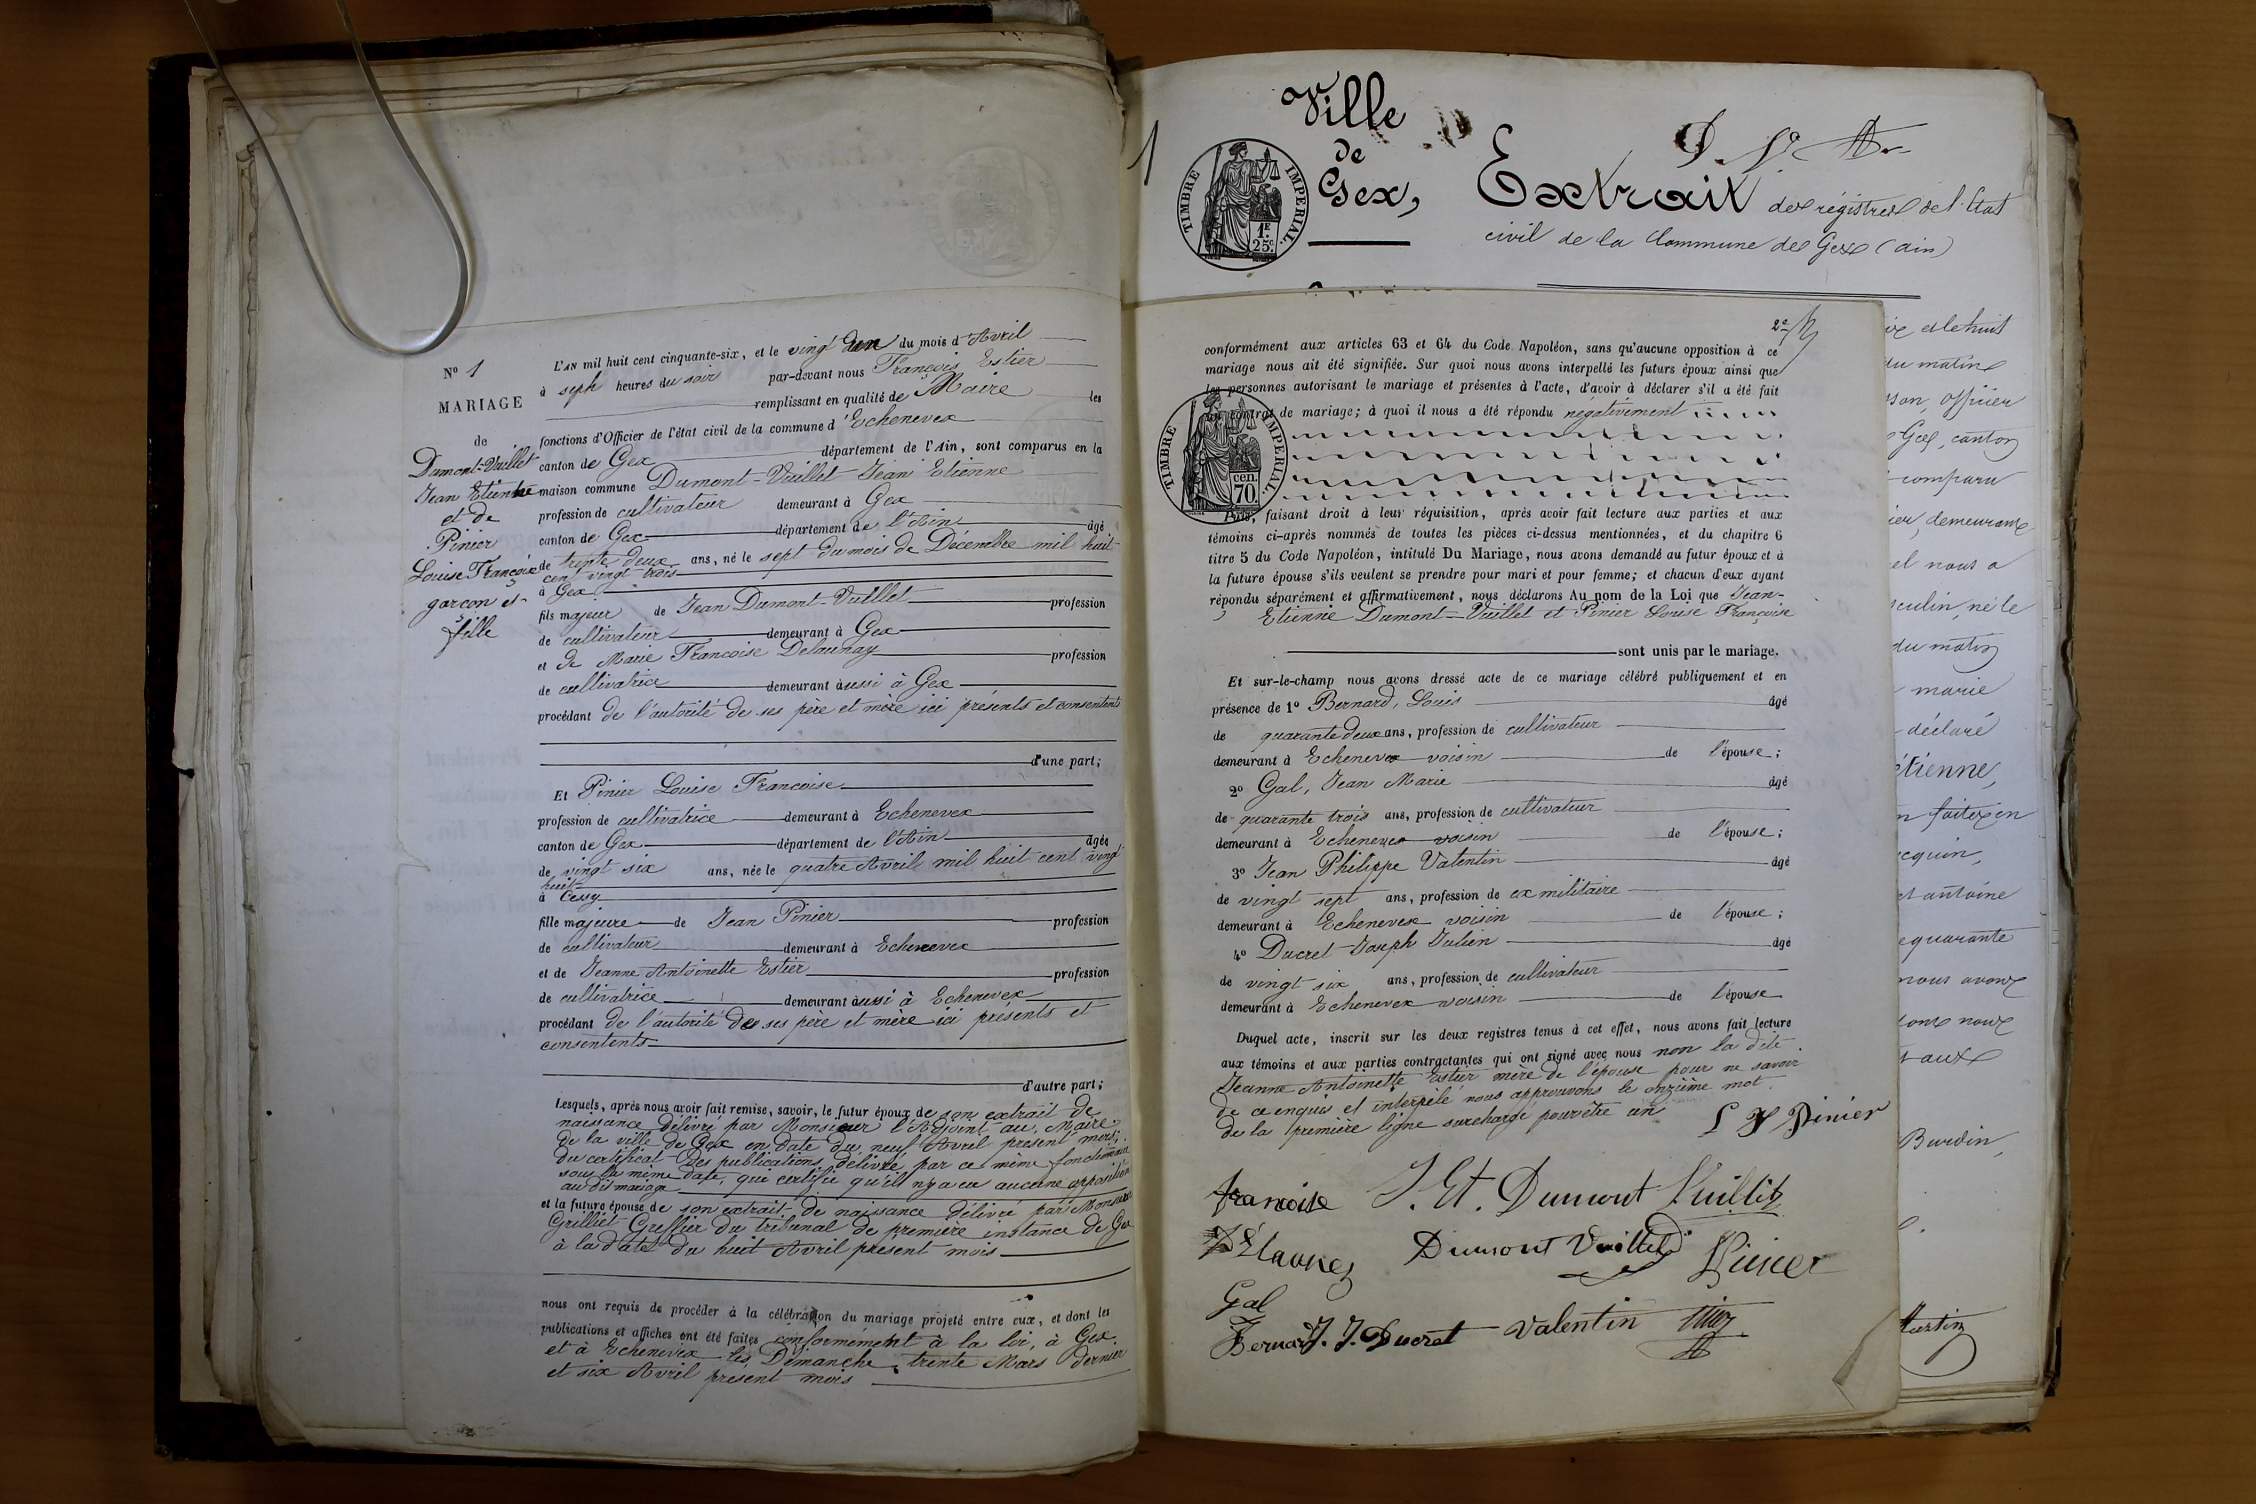 N° 1
MARIAGE
de
Dumont-Vuillet
Jean Etienne
et de
Pinier
Louise Françoise
garçon et
fille
L'AN mil huit cent cinquante-six, et le vingt un du mois d'Avril
à sept heures du soir par-devant nous François Estier
remplissant en qualité de Maire les
fonctions d'Officier de l'état civil de la commune d'Echenevex
canton de Gex département de l'Ain, sont comparus en la
maison commune Dumont-Vuillet Jean Etienne
profession de cultivateur demeurant à Gex
canton de Gex département de l'Ain âgé
de trente deux ans, né le sept du mois de Décembre mil huit
cent vingt trois
à Gex
fils majeur de Jean Dumont-Vuillet profession
de cultivateur demeurant à Gex
et de Marie Françoise Delaunay profession
de cultivatrice demeurant aussi à Gex
procédant de l'autorité de ses père et mère ici présents et consentents
d'une part;
Et Pinier Louise Françoise
profession de cultivatrice demeurant à Echenevex
canton de Gex département de l'Ain âgée
de vingt six ans, née le quatre Avril mil huit cent vingt
huit
à Cessy
fille majeure de Jean Pinier profession
de cultivateur demeurant à Echenevex
et de Jeanne Antoinette Estier profession
de cultivatrice demeurant aussi à Echenevex
procédant de l'autorité de ses père et mère ici présents et
consentents
d'autre part;
Lesquels, après nous avoir fait remise, savoir, le futur époux de son extrait de
naissance délivré par Monsieur l'Adjoint au Maire
de la ville de Gex en date du neuf Avril présent mois,
du certificat des publications délivré par ce même fonctionnaire
sous la même date, qui certifie qu'il n'y a eu aucune opposition
au dit mariage
et la future épouse de son extrait de naissance délivré par Monsieur
Grilliet Greffier du tribunal de première instance de Gex
à la date du huit Avril présent mois
nous ont requis de procéder à la célébration du mariage projeté entre eux, et dont les
publications et affiches ont été faites conformément à la loi, à Gex
et à Echenevex les Dimanche trente Mars dernier
et six Avril présent mois
Ville
de
Gex,
TIMBRE IMPERIAL.
1F.
25c
Extrait des régistres de l'Etat
civil de la Commune de Gex (ain)
2e
conformément aux articles 63 et 64 du Code Napoléon, sans qu'aucune opposition à ce
mariage nous ait été signifiée. Sur quoi nous avons interpellé les futurs époux ainsi que
les personnes autorisant le mariage et présentes à l'acte, d'avoir à déclarer s'il a été fait
un contrat de mariage; à quoi il nous a été répondu négativement
TIMBRE IMPERIAL.
cen.
70.
Puis, faisant droit à leur réquisition, après avoir fait lecture aux parties et aux
témoins ci-après nommés de toutes les pièces ci-dessus mentionnées, et du chapitre 6
titre 5 du Code Napoléon, intitulé Du Mariage, nous avons demandé au futur époux et à
la future épouse s'ils veulent se prendre pour mari et pour femme; et chacun d'eux ayant
répondu séparément et affirmativement, nous déclarons Au nom de la Loi que Jean-
Etienne Dumont-Vuillet et Pinier Louise Françoise
sont unis par le mariage.
Et sur-le-champ nous avons dressé acte de ce mariage célébré publiquement et en
présence de 1° Bernard, Louis âgé
de quarante deux ans, profession de cultivateur
demeurant à Echenevex voisin de l'épouse;
2° Gal, Jean Marie âgé
de quarante trois ans, profession de cultivateur
demeurant à Echenevex voisin de l'épouse;
3° Jean Philippe Valentin âgé
de vingt sept ans, profession de ex militaire
demeurant à Echenevex voisin de l'épouse;
4° Ducret Joseph Julien âgé
de vingt six ans, profession de cultivateur
demeurant à Echenevex voisin de l'épouse
Duquel acte, inscrit sur les deux registres tenus à cet effet, nous avons fait lecture
aux témoins et aux parties contractantes qui ont signé avec nous non la dite
Jeanne Antoinette Estier mère de l'épouse pour ne savoir
de ce enquis et interpelé nous approuvons le onzième mot
de la première ligne surchargé pour être un
L F Pinier
francoise J. Et. Dumont Vuillit
Dumont Vuillet Pinier
Gal
Bernard J. J. Ducret Valentin
ix et le huit
du matin
son, officier
Gex, canton
comparu
ier, demeurant
el nous a
sculin, né le
du matin
marie
déclaré
étienne,
faites en
cquin,
et antoine
quarante
nous avons
ont nous
aux
Burdin,
Martin